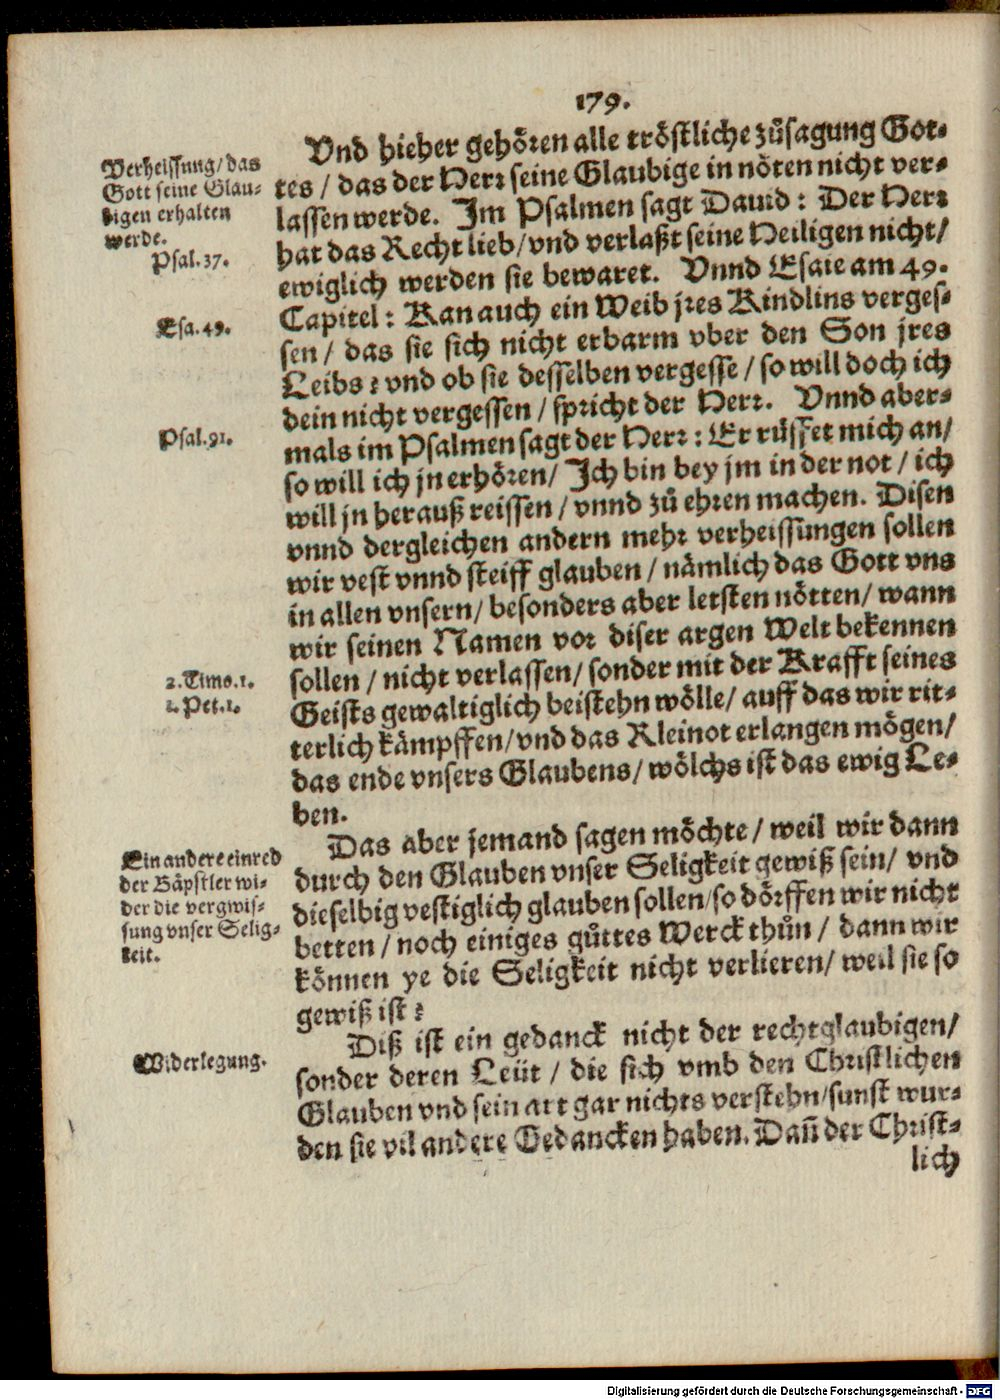 179.
Vnd hieher gehören alle tröstliche zůsagung Got-
tes / das der Herr seine Glaubige in nöten nicht ver-
lassen werde. Im Psalmen sagt Dauid: Der Herr
hat das Recht lieb / vnd verlaßt seine Heiligen nicht /
ewiglich werden sie bewaret. Vnnd Esaie am 49.
Capitel: Kan auch ein Weib jres Kindlins verges-
sen / das sie sich nicht erbarm vber den Son jres
Leibs? vnd ob sie desselben vergesse / so will doch ich
dein nicht vergessen / spricht der Herr. Vnnd aber-
mals im Psalmen sagt der Herr: Er rüffet mich an /
so will ich jn erhören / Ich bin bey jm in der not / ich
will jn herauß reissen / vnnd zů ehren machen. Disen
vnnd dergleichen andern mehr verheissungen sollen
wir vest vnnd steiff glauben / nämlich das Gott vns
in allen vnsern / besonders aber letsten nötten / wann
wir seinen Namen vor diser argen Welt bekennen
sollen / nicht verlassen / sonder mit der Krafft seines
Geists gewaltiglich beistehn wölle / auff das wir rit-
terlich kämpffen / vnd das Kleinot erlangen mögen /
das ende vnsers Glaubens / wölchs ist das ewig Le-
ben.
Das aber jemand sagen möchte / weil wir dann
durch den Glauben vnser Seligkeit gewiß sein / vnd
dieselbig vestiglich glauben sollen / so dörffen wir nicht
betten / noch einiges gůttes Werck thůn / dann wir
können ye die Seligkeit nicht verlieren / weil sie so
gewiß ist?
Diß ist ein gedanck nicht der rechtglaubigen /
sonder deren Leüt / die sich vmb den Christlichen
Glauben vnd sein art gar nichts verstehn / sunst wur-
den sie vil andere Gedancken haben. Dañ der Christ-
lich
Verheissung / das
Gott seine Glau-
bigen erhalten
werde.
Psal. 37.
Esa. 49.
Psal. 91.
2. Timo. 1.
1. Pet. 1.
Ein andere einred
der Bäpstler wi-
der die vergwis-
sung vnser Selig-
keit.
Widerlegung.
Digitalisierung gefördert durch die Deutsche Forschungsgemeinschaft - DFG